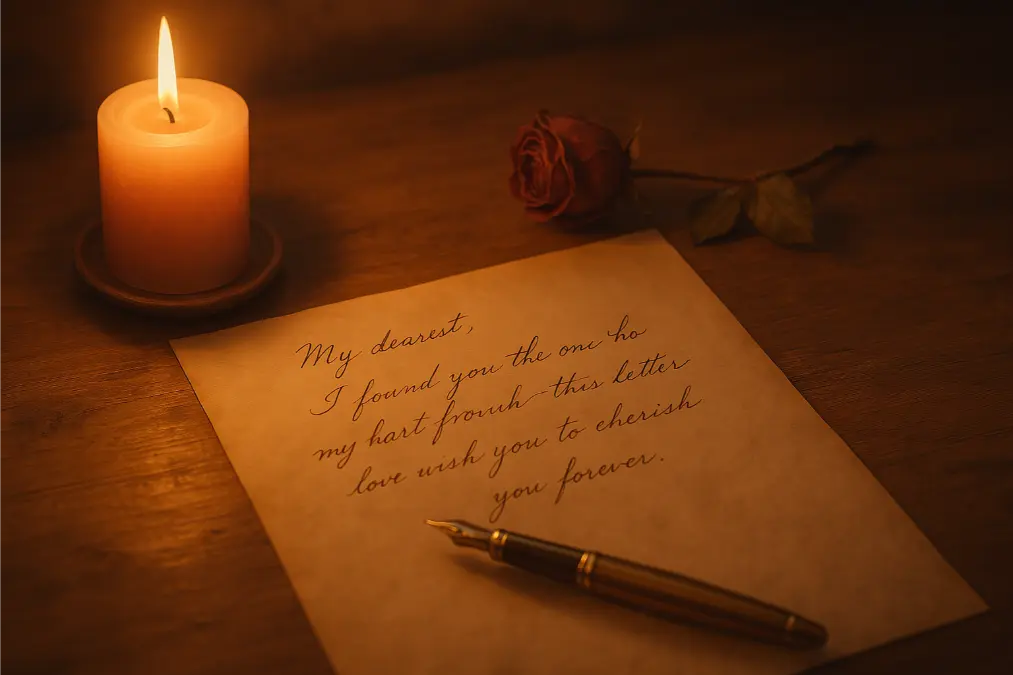 My dearest,
I found you the one ho
my hart frouh–this letter
love wish you to cherish
you forever.